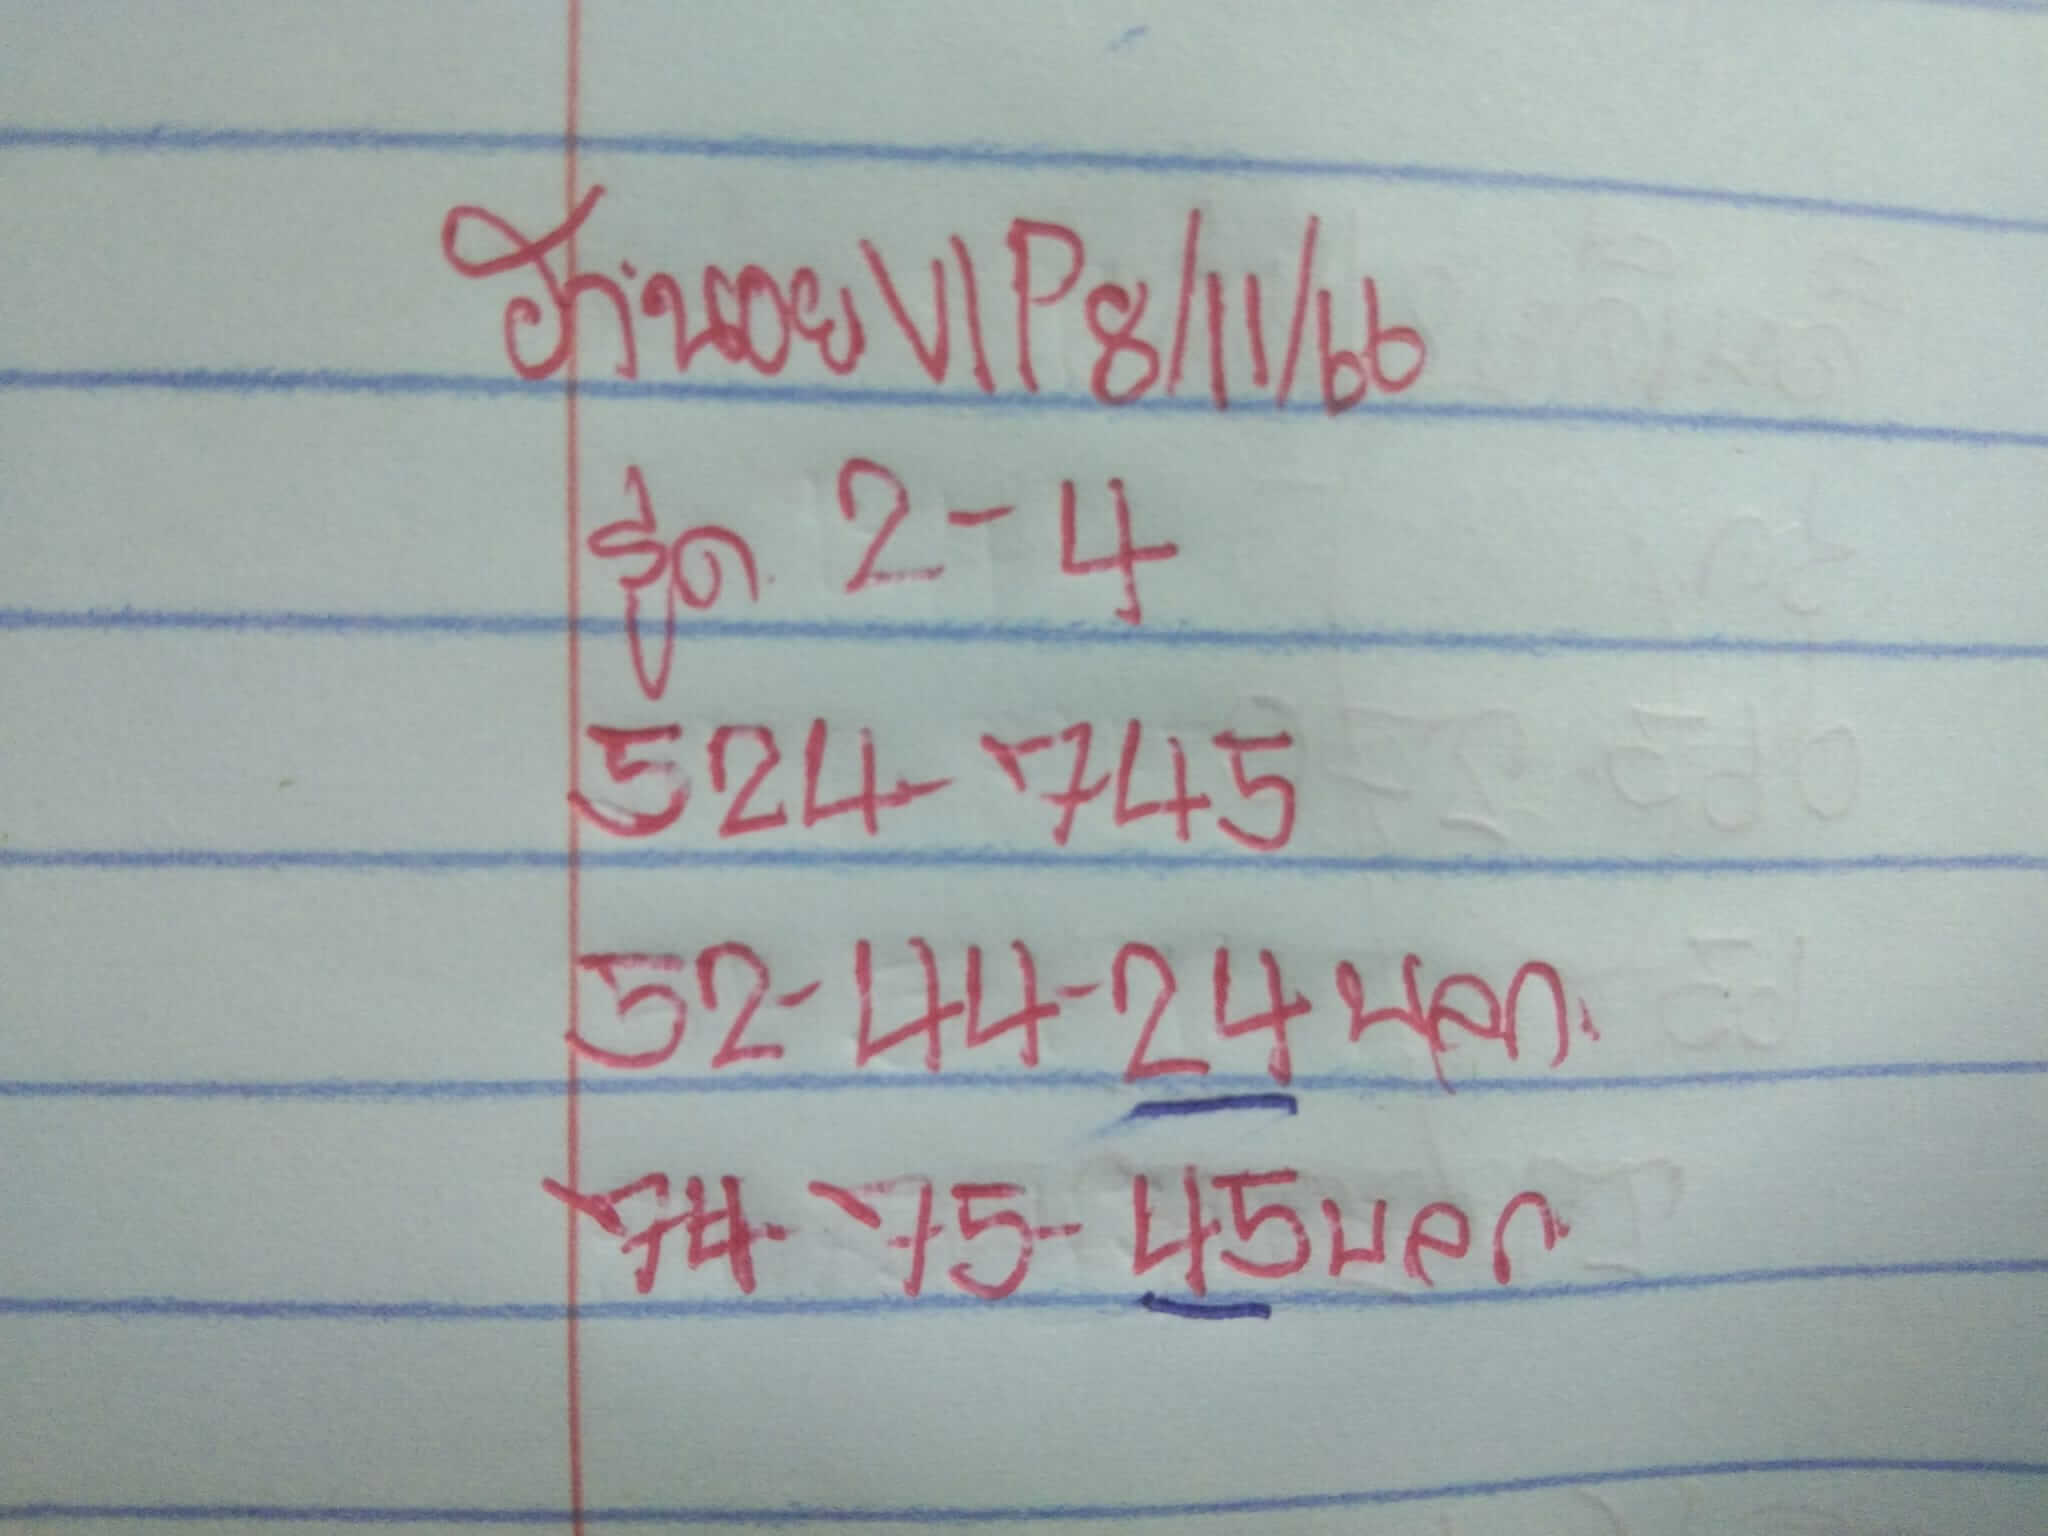 ฮานอยVIP8/11/66
รูด 2-4
524-745
52-44-24บลก
74-75-45บลก